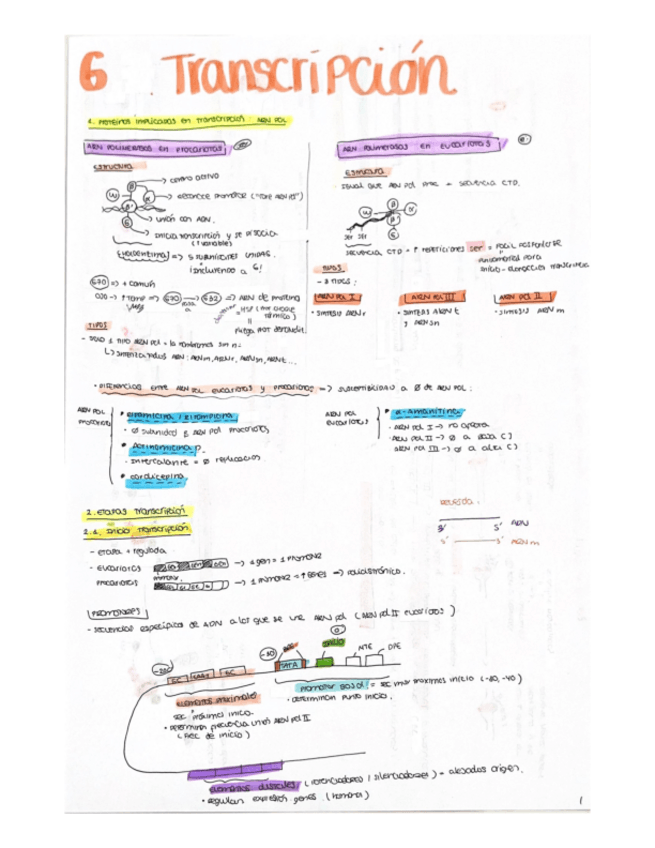 6 Transcripción
1. Proteínas implicadas en transcripción: ARN POL
ARN polimerasas en procariotas
Estructura
→ centro activo
→ reconoce promotor
→ unión con ADN.
→ inicia transcripción y se disocia.
(variable)
Holoenzima => 5 subunidades unidas.
¡incluyendo a 6!
σ70 => + común
TIPOS
- Solo 1 tipo ARN pol = la nombramos sin nº
↳ sintetiza todos ARN: ARNm, ARNr, ARNsn, ARNt...
ARN Polimerasas en eucariotas
Estructura
Igual que ARN pol proc + secuencia CTD.
ser ser
Secuencia CTD = ↑ repeticiones ser
TIPOS
- 3 TIPOS:
ARN pol I
• Síntesis ARNr
ARN pol III
• Síntesis ARNt
y ARNsn
ARN pol II
• Síntesis ARNm
• Diferencias entre ARN pol eucariotas y procariotas => susceptibilidad a Ø de ARN pol:
ARN pol
procariota
• Rifamicina / Rifampicina
• Ø subunidad β ARN pol procariotas
• Actinomicina D.
• Intercalante = Ø replicación
• Cordicepina
ARN pol
eucariotas
• α-amanitina
• ARN pol I → no afecta
• ARN pol II → Ø a baja [ ]
ARN pol III → Ø a alta [ ]
2. Etapas transcripción
2.1. Inicio transcripción
- etapa + regulada
- eucariotas → 1 gen = 1 ARNm
procariotas → 1 ARNm = ↑ genes → policistrónico.
Recuerda:
3' 5' ADN
5' 3' ARNm
PROMOTORES
- Secuencias específicas de ADN a los que se une ARN pol (ARN pol II eucariotas)
GC CAAT GC TATA INICIO MTE DPE
Promotor basal = sec muy próximas inicio (-30, -40)
• determinan punto inicio.
Elementos proximales
sec próximas inicio.
• determinan frecuencia unión ARN pol II
(frec de inicio)
Elementos distales (potenciadores / silenciadores) = alejadas origen.
• regulan expresión genes.
1